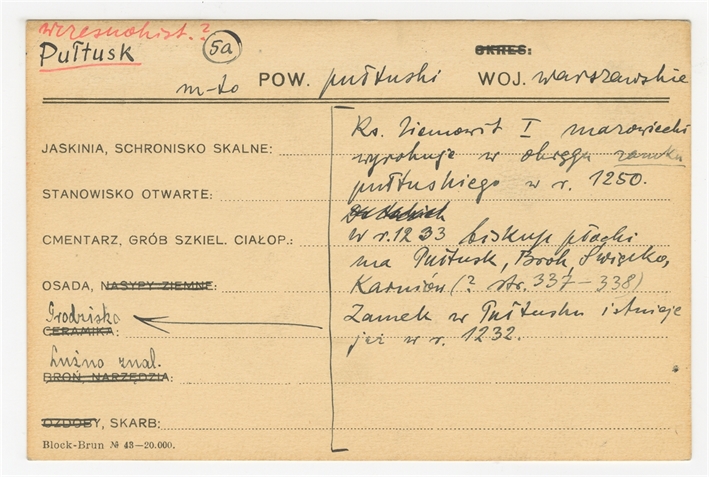 wczesnohist.?
Pułtusk
5a
OKRES:
m-to POW. pułtuski WOJ. warszawskie
JASKINIA, SCHRONISKO SKALNE:
STANOWISKO OTWARTE:
CMENTARZ, GRÓB SZKIEL. CIAŁOP.:
OSADA, NASYPY ZIEMNE:
Grodzisko
CERAMIKA:
Luźno znal.
BROŃ, NARZĘDZIA:
OZDOBY, SKARB:
Block-Brun № 43—20.000.
Ks. Ziemowit I mazowiecki
wyrokuje w okręgu zamku
pułtuskiego w r. 1250.
W r. 1233 biskup płocki
ma Pułtusk, Brok, Święcko,
Karniów (? str. 337–338)
Zamek w Pułtusku istnieje
już w r. 1232.